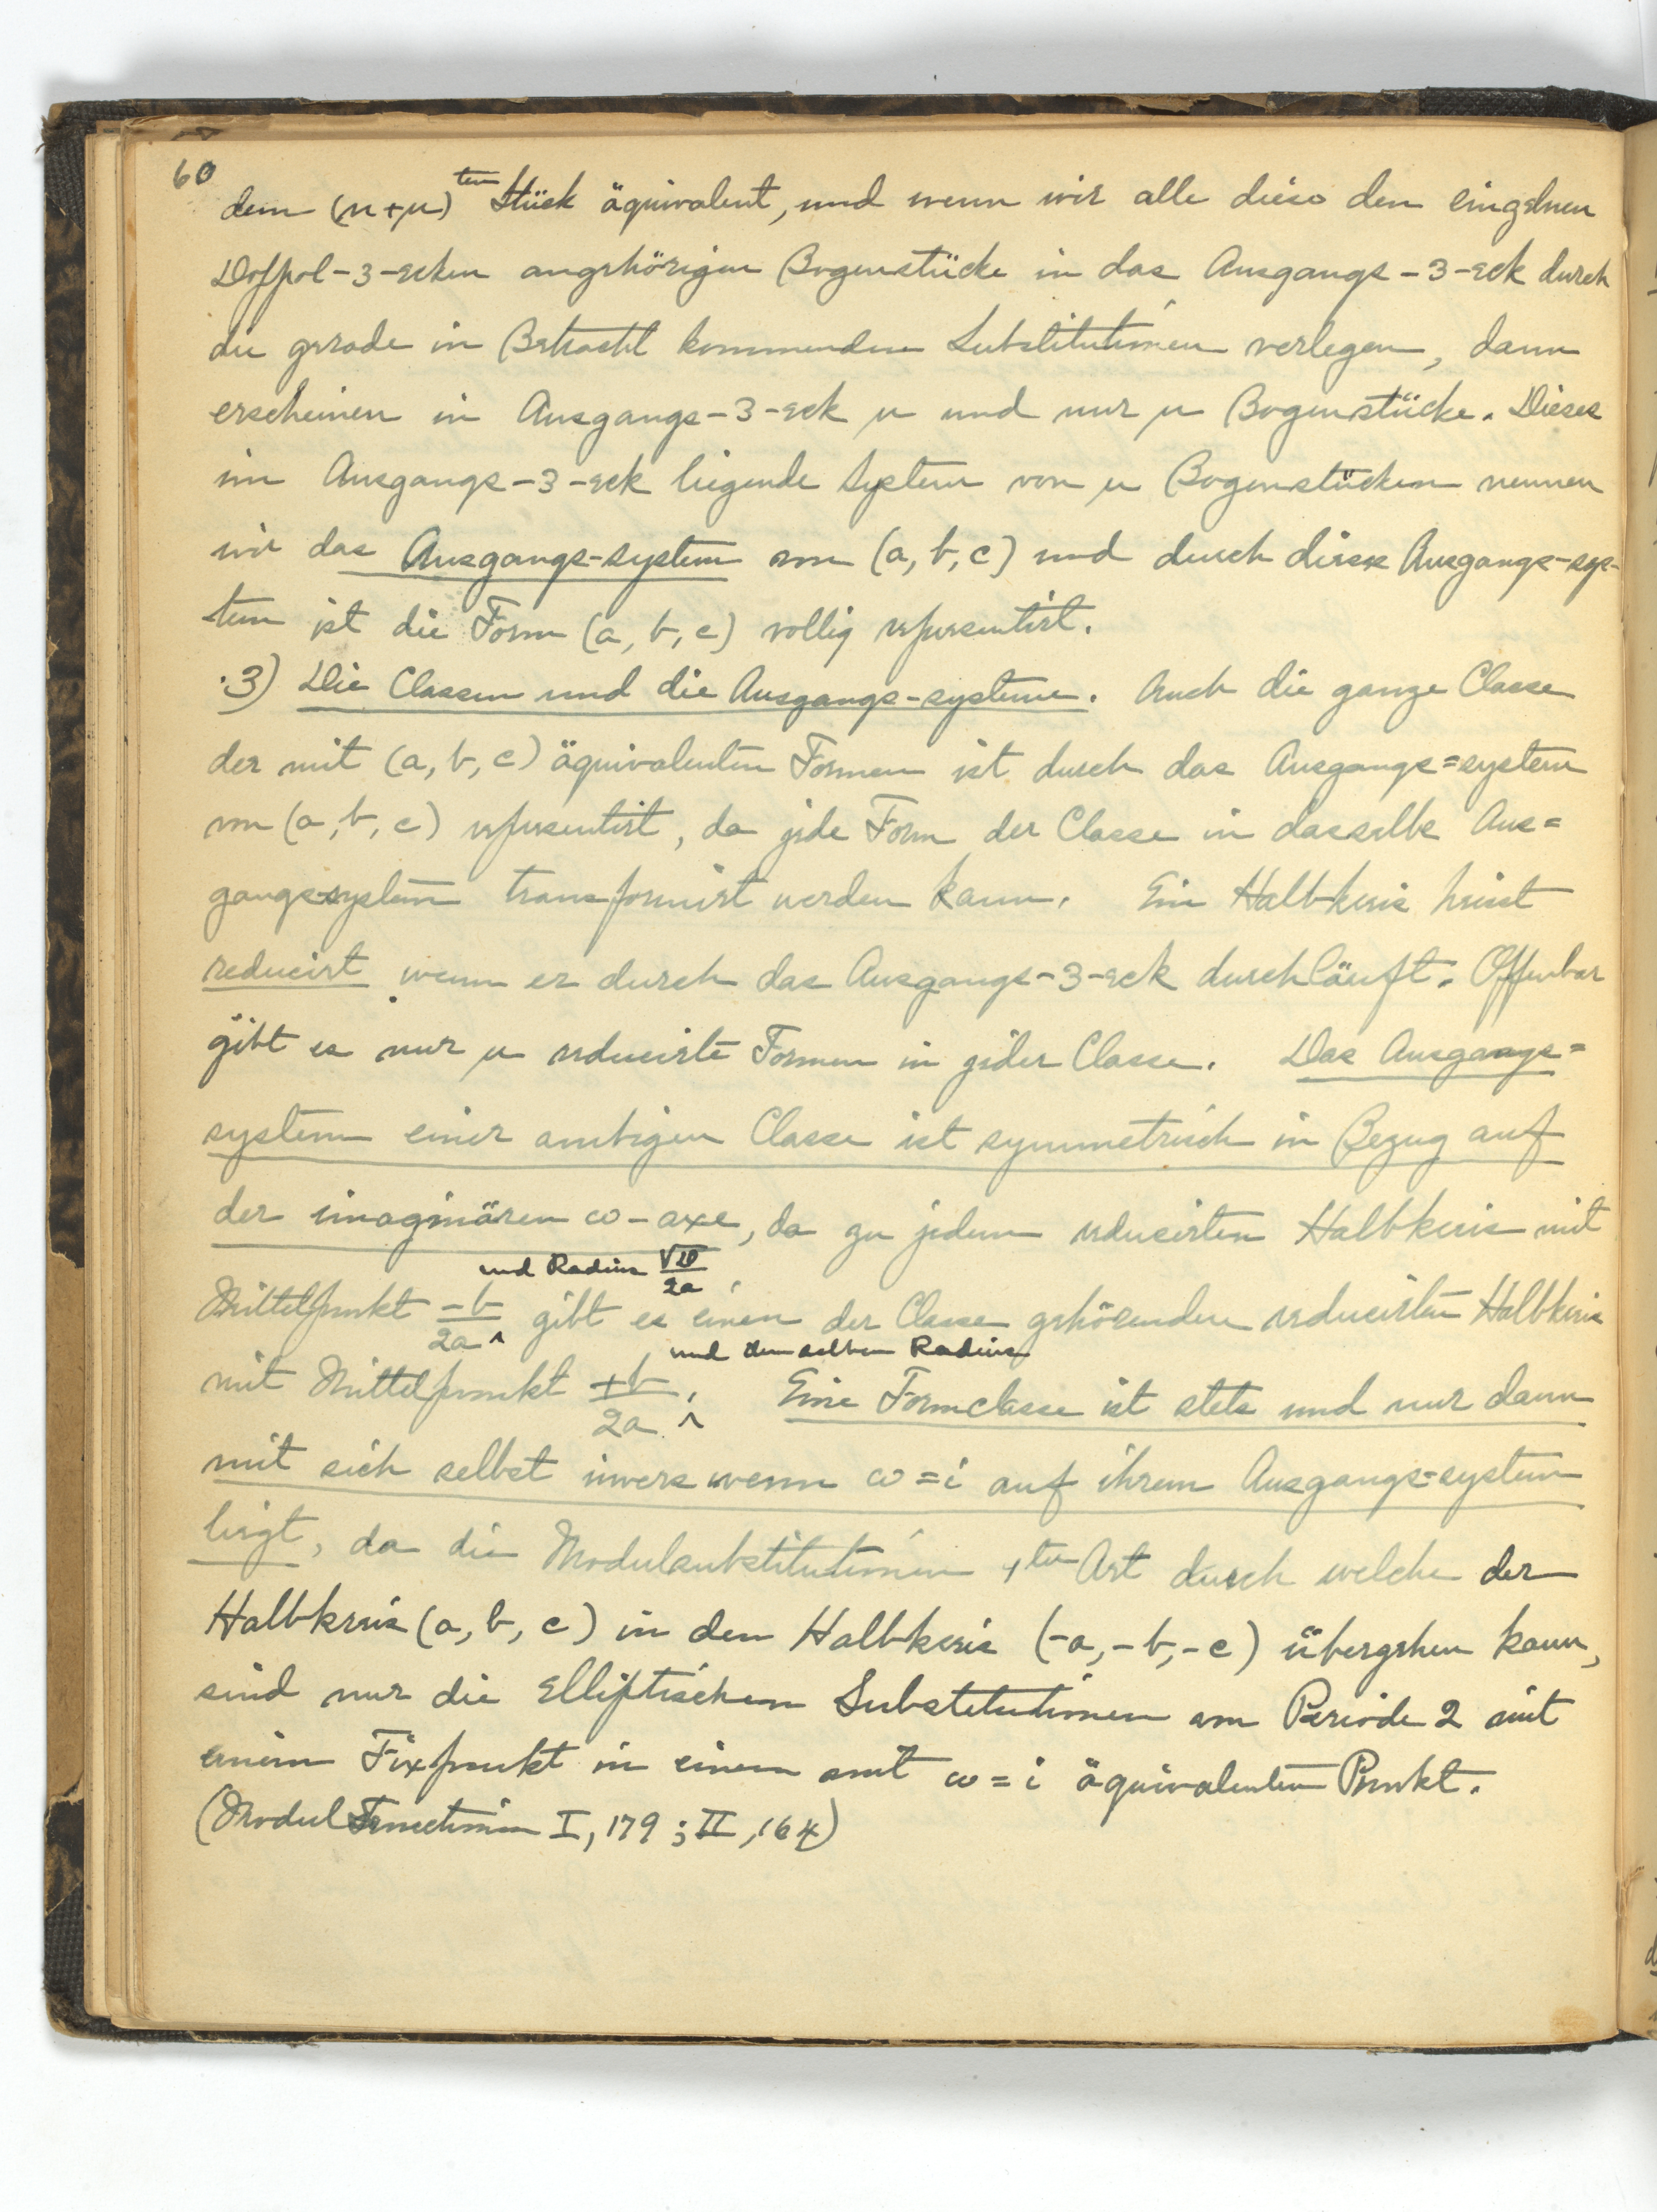 60
dem (n+μ)ten Stück äquivalent, und wenn wir alle diese den einzelnen
Doppel-3-ecken angehörigen Bogenstücke in das Ausgangs-3-eck durch
die gerade in Betracht kommenden Substitutionen verlegen, dann
erscheinen in Ausgangs-3-eck μ und nur μ Bogenstücke. Dieses
im Ausgangs-3-eck liegende System von μ Bogenstücken nennen
wir das Ausgangs-system von (a, b, c) und durch dieses Ausgangs-sys-
tem ist die Form (a, b, c) vollig representirt.
3) Die Classen und die Ausgangs-systeme. Auch die ganze Classe
der mit (a, b, c) äquivalenten Formen ist durch das Ausgangs=system
von (a, b, c) representirt, da jede Form der Classe in dasselbe Aus=
gangs-system transformirt werden kann. Ein Halbkreis heisst
reducirt wenn er durch das Ausgangs-3-eck durchläuft. Offenbar
gibt es nur μ reducirte Formen in jeder Classe. Das Ausgangs=
system einer ambigen Classe ist symmetrisch in Bezug auf
der imaginären ω-axe, da zu jedem reducirten Halbkreis mit
und Radius √D/2a
Mittelpunkt -b/2a ^ gibt es einen der Classe gehörenden reducirten Halbkreis
und demselben Radius
mit Mittelpunkt +b/2a ^. Eine Formclasse ist stets und nur dann
mit sich selbst invers wenn ω=i auf ihrem Ausgangs=system
liegt, da die Modulsubstitutionen 1ter Art durch welche der
Halbkreis (a, b, c) in den Halbkreis (-a,-b,-c) übergehen kann,
sind nur die elliptischen Substitutionen von Periode 2 mit
einem Fixpunkt in einem mit ω=i äquivalenten Punkt.
(Modul Functionen I, 179; II, 164)